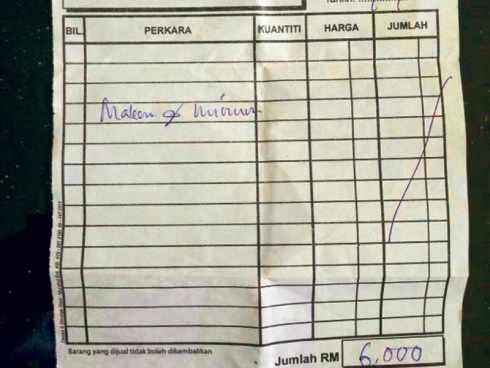 BIL. PERKARA KUANTITI HARGA JUMLAH
Makan & Minum
Barang yang dijual tidak boleh dikembalikan
Jumlah RM 6,000